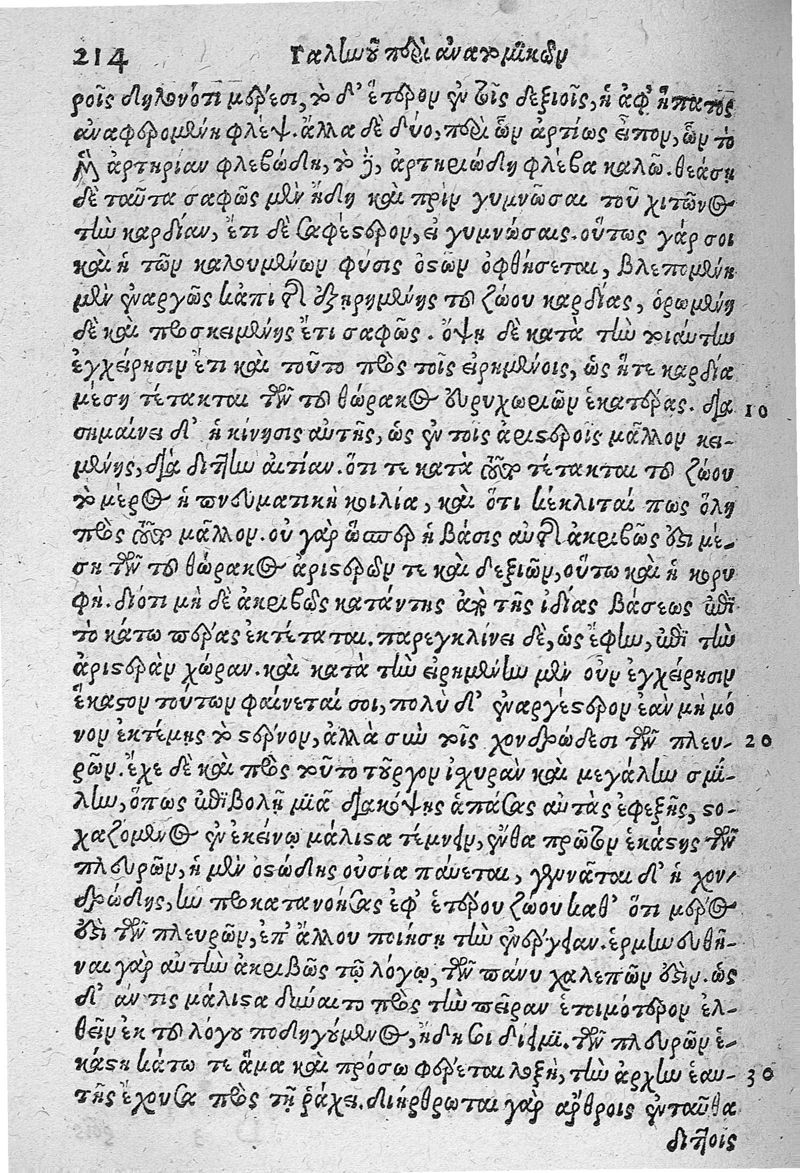 214 Γαληνοῦ περὶ ἀνατομικῶν
ροῖς δηλονότι μέρεσι, τὸ δ' ἕτερον ἐν τοῖς δεξιοῖς, ἡ ἀφ' ἥπατος
ἀναφερομένη φλέψ. ἄλλα δὲ δύο, περὶ ὧν ἀρτίως εἶπον, ὧν τὸ
μὲν ἀρτηρίαν φλεβώδη, τὸ δὲ, ἀρτηριώδη φλέβα καλῶ. θεάσῃ
δὲ ταῦτα σαφῶς μὲν ἤδη καὶ πρὶν γυμνῶσαι τοῦ χιτῶνος
τὴν καρδίαν, ἔτι δὲ σαφέστερον, εἰ γυμνώσαις. οὕτως γάρ σοι
καὶ ἡ τῶν καλουμένων φύσις ὀστῶν ὀφθήσεται, βλεπομένη
μὲν ἐναργῶς κἀπὶ τῆς ἐξῃρημένης τοῦ ζώου καρδίας, ὁρωμένη
δὲ καὶ προσκειμένης ἔτι σαφῶς. ὄψῃ δὲ κατὰ τὴν τοιαύτην
ἐγχείρησιν ἔτι καὶ τοῦτο πρὸς τοῖς εἰρημένοις, ὡς ἥτε καρδία
μέση τέτακται τῶν τοῦ θώρακος εὐρυχωριῶν ἑκατέρας. δια 10
σημαίνει δ' ἡ κίνησις αὐτῆς, ὡς ἐν τοῖς ἀριστεροῖς μᾶλλον κει-
μένης, διὰ διττὴν αἰτίαν. ὅτι τε κατὰ τοῦτο τέτακται τοῦ ζώου
τὸ μέρος ἡ πνευματικὴ κοιλία, καὶ ὅτι κέκλιταί πως ὅλη
πρὸς τοῦτο μᾶλλον. οὐ γὰρ ὥσπερ ἡ βάσις αὐτῆς ἀκριβῶς ἐστι μέ-
ση τῶν τοῦ θώρακος ἀριστερῶν τε καὶ δεξιῶν, οὕτω καὶ ἡ κορυ
φή. διότι μὴ δὲ ἀκριβῶς κατάντης ἀπὸ τῆς ἰδίας βάσεως ἐπὶ
τὸ κάτω πέρας ἐκτέταται. παρεγκλίνει δὲ, ὡς ἔφην, ἐπὶ τὴν
ἀριστερὰν χώραν. καὶ κατὰ τὴν εἰρημένην μὲν οὖν ἐγχείρησιν
ἕκαστον τούτων φαίνεταί σοι, πολὺ δ' ἐναργέστερον ἐὰν μὴ μό
νον ἐκτέμης τὸ στέρνον, ἀλλὰ σὺν τοῖς χονδρώδεσι τῶν πλευ- 20
ρῶν. ἔχε δὲ καὶ πρὸς τοῦτο τοὔργον ἰχυρὰν καὶ μεγάλην σμί-
λην, ὅπως ἐπιβολῇ μιᾷ διακόψῃς ἁπάσας αὐτὰς ἐφεξῆς, στο-
χαζόμενος ἐν ἐκείνῳ μάλιστα τέμνειν, ἔνθα πρῶτον ἑκάστης τῶν
πλευρῶν, ἡ μὲν ὀστώδης οὐσία παύεται, γεννᾶται δ' ἡ χον-
δρώδης, ἣν προκατανοήσας ἐφ' ἑτέρου ζώου καθ' ὅτι μέρος
ἐστὶ τῶν πλευρῶν, ἐπ' ἄλλου ποιήσῃ τὴν ἐνέργειαν. ἑρμηνευθῆ-
ναι γὰρ αὐτὴν ἀκριβῶς τῷ λόγῳ, τῶν πάνυ χαλεπῶν ἐστιν. ὡς
δ' ἄν τις μάλιστα δύναιτο πρὸς τὴν πεῖραν ἑτοιμότερον ἐλ-
θεῖν ἐκ τοῦ λόγου ποδηγούμενος, ἤδη σοι δίειμι. τῶν πλευρῶν ἑ-
κάστη κάτω τε ἅμα καὶ πρόσω φέρεται λοξὴ, τὴν ἀρχὴν ἑαυ- 30
τῆς ἔχουσα πρὸς τῇ ῥάχει. διήρθρωται γὰρ ἄρθροις ἐνταῦθα
διττοῖς